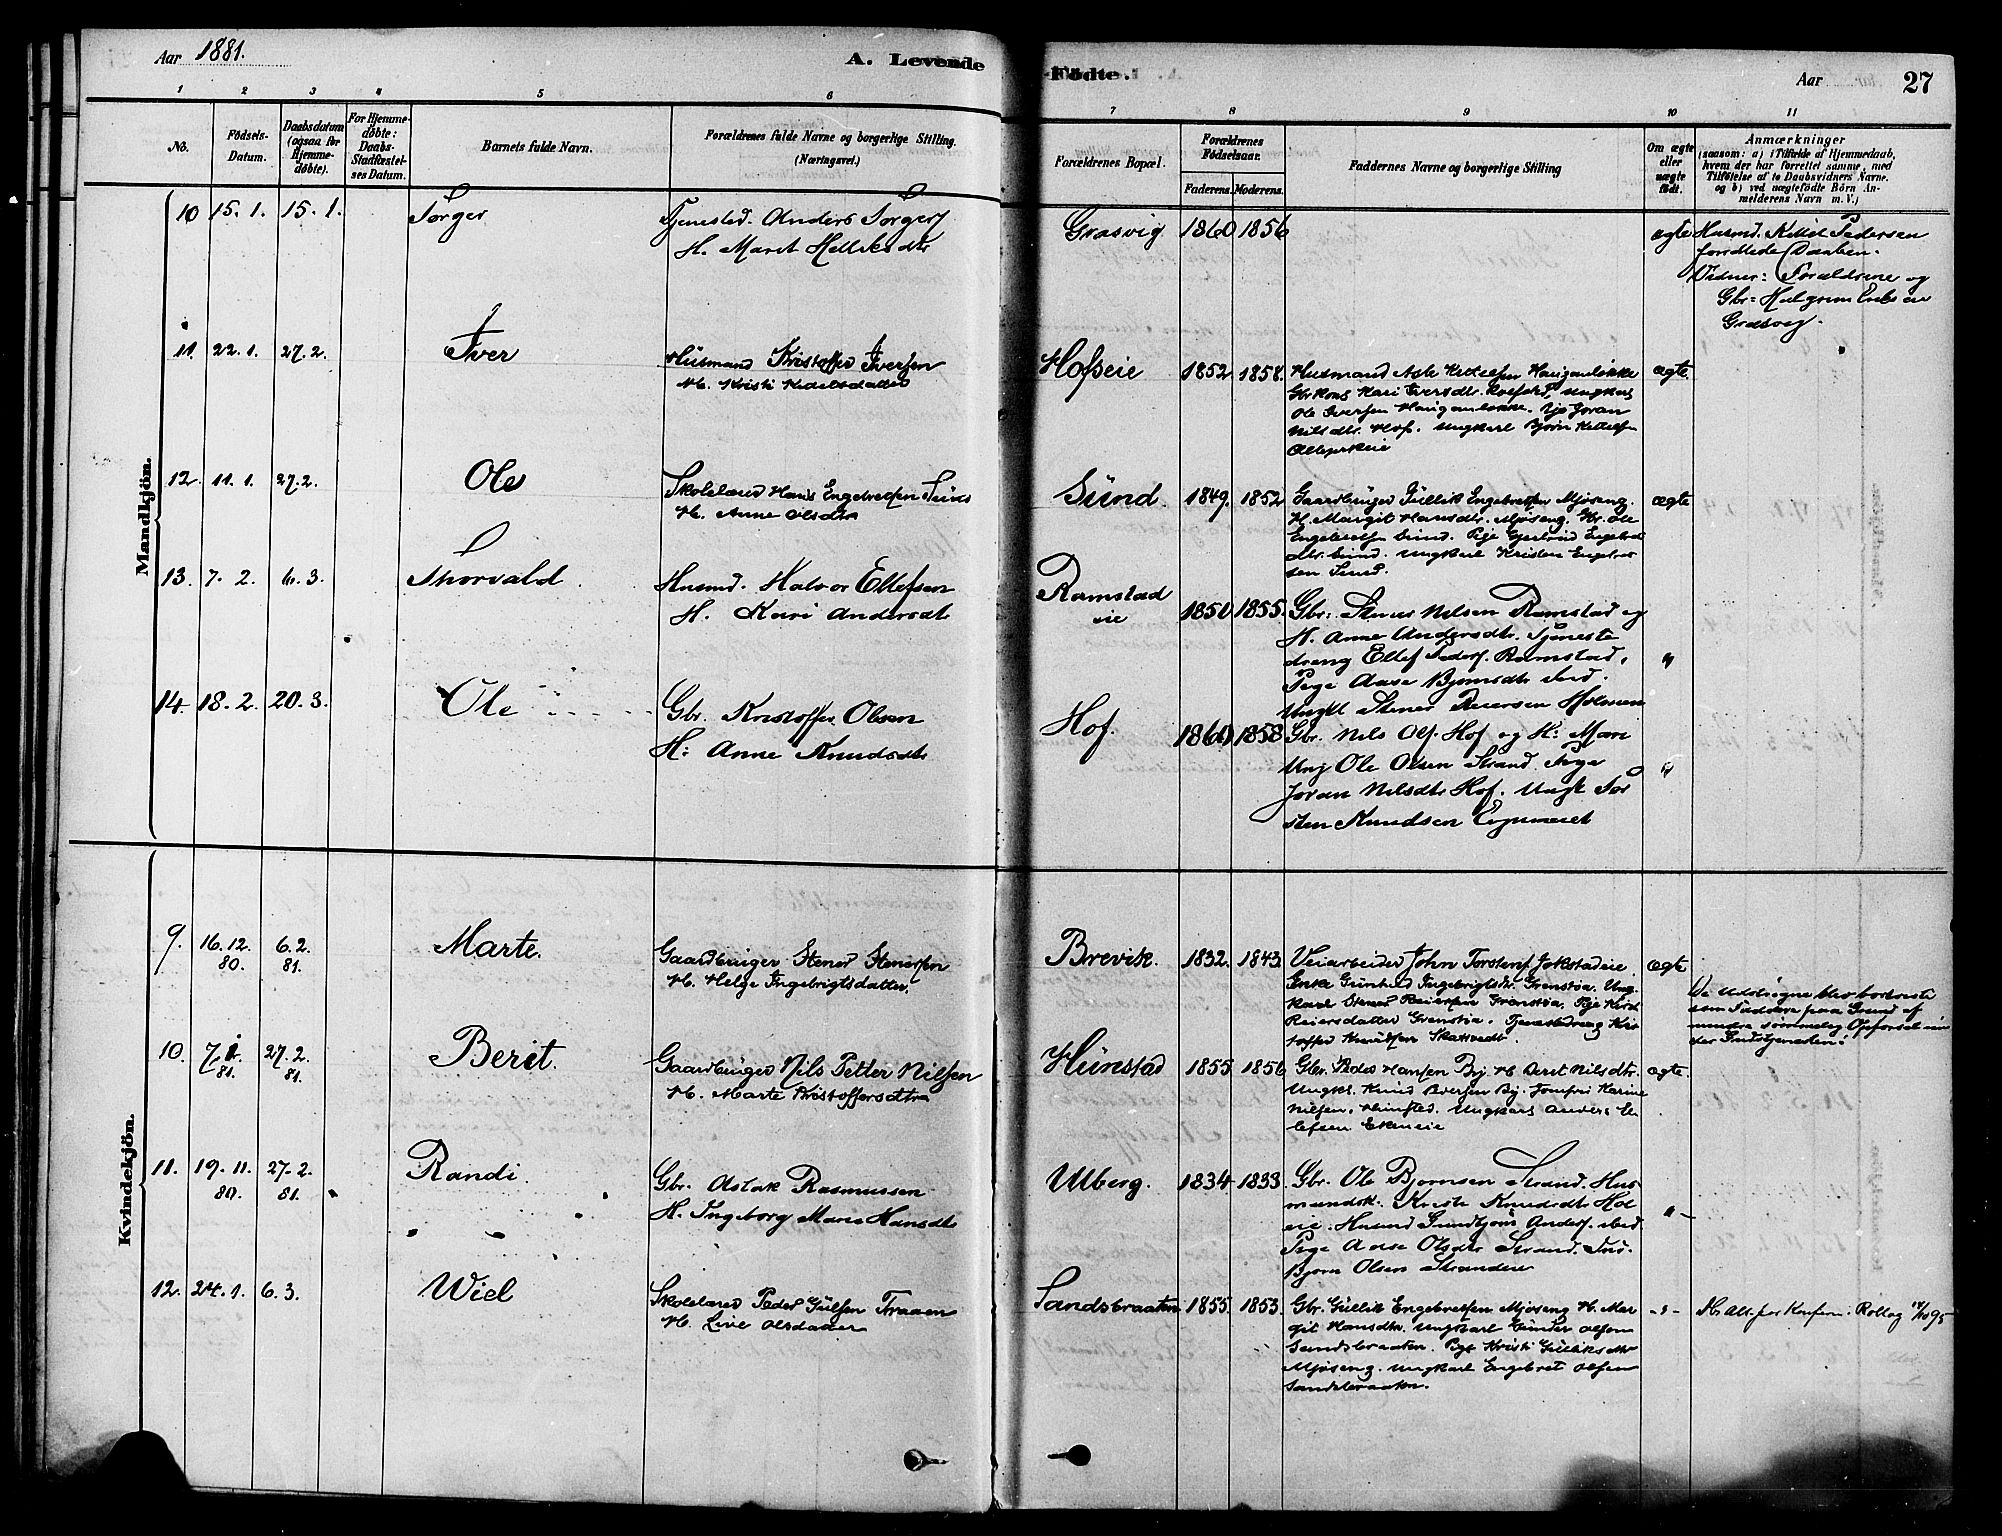 Aar 1881.
A. Levende
-Födte.
Aar
27
1 2 3 4 5 6 7 8 9 10 11
No.
Födsels-
Datum.
Daabsdatum
(ogsaa for
Hjemme-
döbte).
For Hjemme-
døbte:
Daabs-
Stadfæstel-
ses Datum.
Barnets fulde Navn.
Forældrenes fulde Navne og borgerlige Stilling.
(Næringsvei.)
Forældrenes Bopæl.
Forældrenes
Födselsaar.
Faderens. Moderens.
Faddernes Navne og borgerlige Stilling
Om ægte
eller
uægte
födt.
Anmærkninger
(saasom: a) i Tilfælde af Hjemmedaab,
hvem der har forrettet samme, med
Tilföielse af to Daabsvidners Navne.
og b) ved uægtefödte Börn An-
melderens Navn m.V.)
Mandkjön.
10 15. 1. 15. 1. Torger
Tjenested. Anders Torgers
H. Marit Helliksdtr
Grasvig 1860 1856
ægte
Husmd. Kittil Pedersen
forrettede Daaben.
Vidner: Forældrene og
Gbr: Halgrim Eriksen
Grasvig.
11. 22. 1. 27. 2. Iver
Husmand Kristoffer Iversen
H. Kristi Ketelsdatter
Hofseie 1852 1858.
Husmand Asle Kittelsen Haugenløkke
Gbrkone Kari Iversdtr. Ungkarl
Ole Iversen Haugenløkke. Pige Joran
Nilsdtr. Hof. Ungkarl Bjørn Kittelsen
ægte.
12. 11. 1. 27. 2. Ole
Skolelærer Hans Engebretsen Sund
H. Anne Olsdtr
Sund. 1849. 1852
Gaardbruger Gullik Engebretsen Mjøseng.
H. Margit Hansdtr. Mjøseng. Gbr. Ole
Engebretsen Sund. Pige Engebrets
dtr. Sund. Ungkarl Kristen Engebret
sen Sund.
ægte
13. 7. 2. 6. 3. Thorvald
Husmd. Halvor Ellefsen
H. Kari Andersdt
Ramstad
eie
1850 1855.
Gbr: Stener Nilsen Ramstad og
H. Anne Andersdtr. Tjeneste
dreng Ellef Peders. Ramstad,
Pige Aase Bjørnsdtr ibid.
Ungkl Stener Reiersen Holmen
"
14. 18. 2. 20. 3. Ole
Gbr. Kristoffer Olsen
H: Anne Knudsdtr
Hof. 1860 1858
Gbr. Nils Ols. Hof og H: Mari
Ung Ole Olsen Strand. Pige
Joran Nilsdtr Hof. Ungk Tor
sten Knudsen
"
Kvindekjön.
9. 16. 12. 80. 6. 2. 81. Marte.
Gaardbruger Stener Stenersen
H. Helge Ingebrigtsdatter.
Brevik. 1832. 1843.
Veiarbeider John Torstens. Jokstadeie
Enke Gunhild Ingebrigtsdtr. Grønstia. Ung-
karl Stener Reiersen Grønstia. Pige Kirsti
Reiersdatter Grønstia. Tjenestedreng Kris
toffer Knudsen
ægte
De udstregne blev bortviste
som Faddere paa Grund af
mindre sømmelig Opførsel un
der Gudstjenesten.
10. 7. 1. 81. 27. 2. 81. Berit.
Gaardbruger Nils Petter Nilsen
H. Marte Kristoffersdtr
Hunstad 1855 1856
Gbr. Peder Hansen By. H. Berit Nilsdtr.
Ungk. Knud Iversen By. Jomfru Karine
Nilsen. Hunsted. Ungkarl Anders El-
lefsen Ekeneie
ægte.
11. 19. 11. 80. 27. 2. 81. Randi.
Gbr. Aslak Rasmussen
H. Ingeborg Marie Hansdt
Ulberg. 1834 1833.
Gbr. Ole Bjørnsen Strand. Hus
mandsk. Kristi Knudsdt Hof
eie. Husmd Gundbjørn Anders. ibid
Pige Aase Olsdtr Strand.
Bjørn Olsen Strandeie
"
12. 24. 1. 6. 3. Wiel
Skolelærer Peder Gulsen Traaen
H. Live Olsdatter
Sandsbraaten 1855. 1853.
Gbr. Gullik Engebretsen Mjøseng H. Mar
git Hansdtr. Ungkarl Gunder Olsen
Sandsbraaten. Pige Kristi Gulliksdtr
Mjøseng. Ungkarl Engebret Olsen
Sandsbraaten.
-"-
Att. for Konfirm. Rollag 95